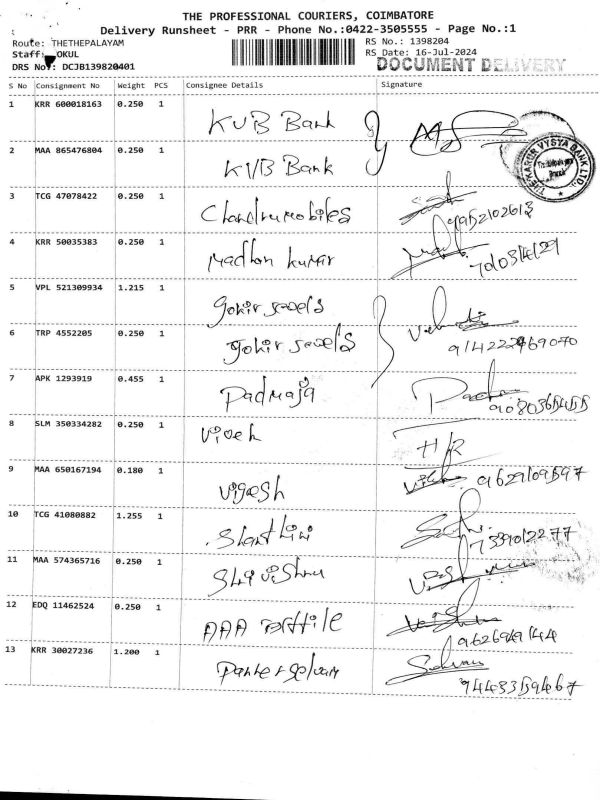 THE PROFESSIONAL COURIERS, COIMBATORE
Delivery Runsheet - PRR - Phone No.:0422-3505555 - Page No.:1
Route: THETHEPALAYAM
RS No.: 1398204
Staff: OKUL
RS Date: 16-Jul-2024
DRS No.: DCJB139820401
DOCUMENT DELIVERY
S No Consignment No Weight PCS Consignee Details Signature
1 KRR 600018163 0.250 1 KVB Bank
THE KARUR VYSYA BANK LTD.
Branch
2 MAA 865476804 0.250 1 KVB Bank
3 TCG 47078422 0.250 1 Chandru mobiles
9952102613
4 KRR 50035383 0.250 1 Madhan kumar
5 VPL 521309934 1.215 1 Gokir Jewels
6 TRP 4552205 0.250 1 Gokir Jewels
7 APK 1293919 0.455 1 Padmaja
8 SLM 350334282 0.250 1 Vivek
9 MAA 650167194 0.180 1 Vigesh
9629109597
10 TCG 41080882 1.255 1
11 MAA 574365716 0.250 1 Shri Vishnu
12 EDQ 11462524 0.250 1 AAA
13 KRR 30027236 1.200 1